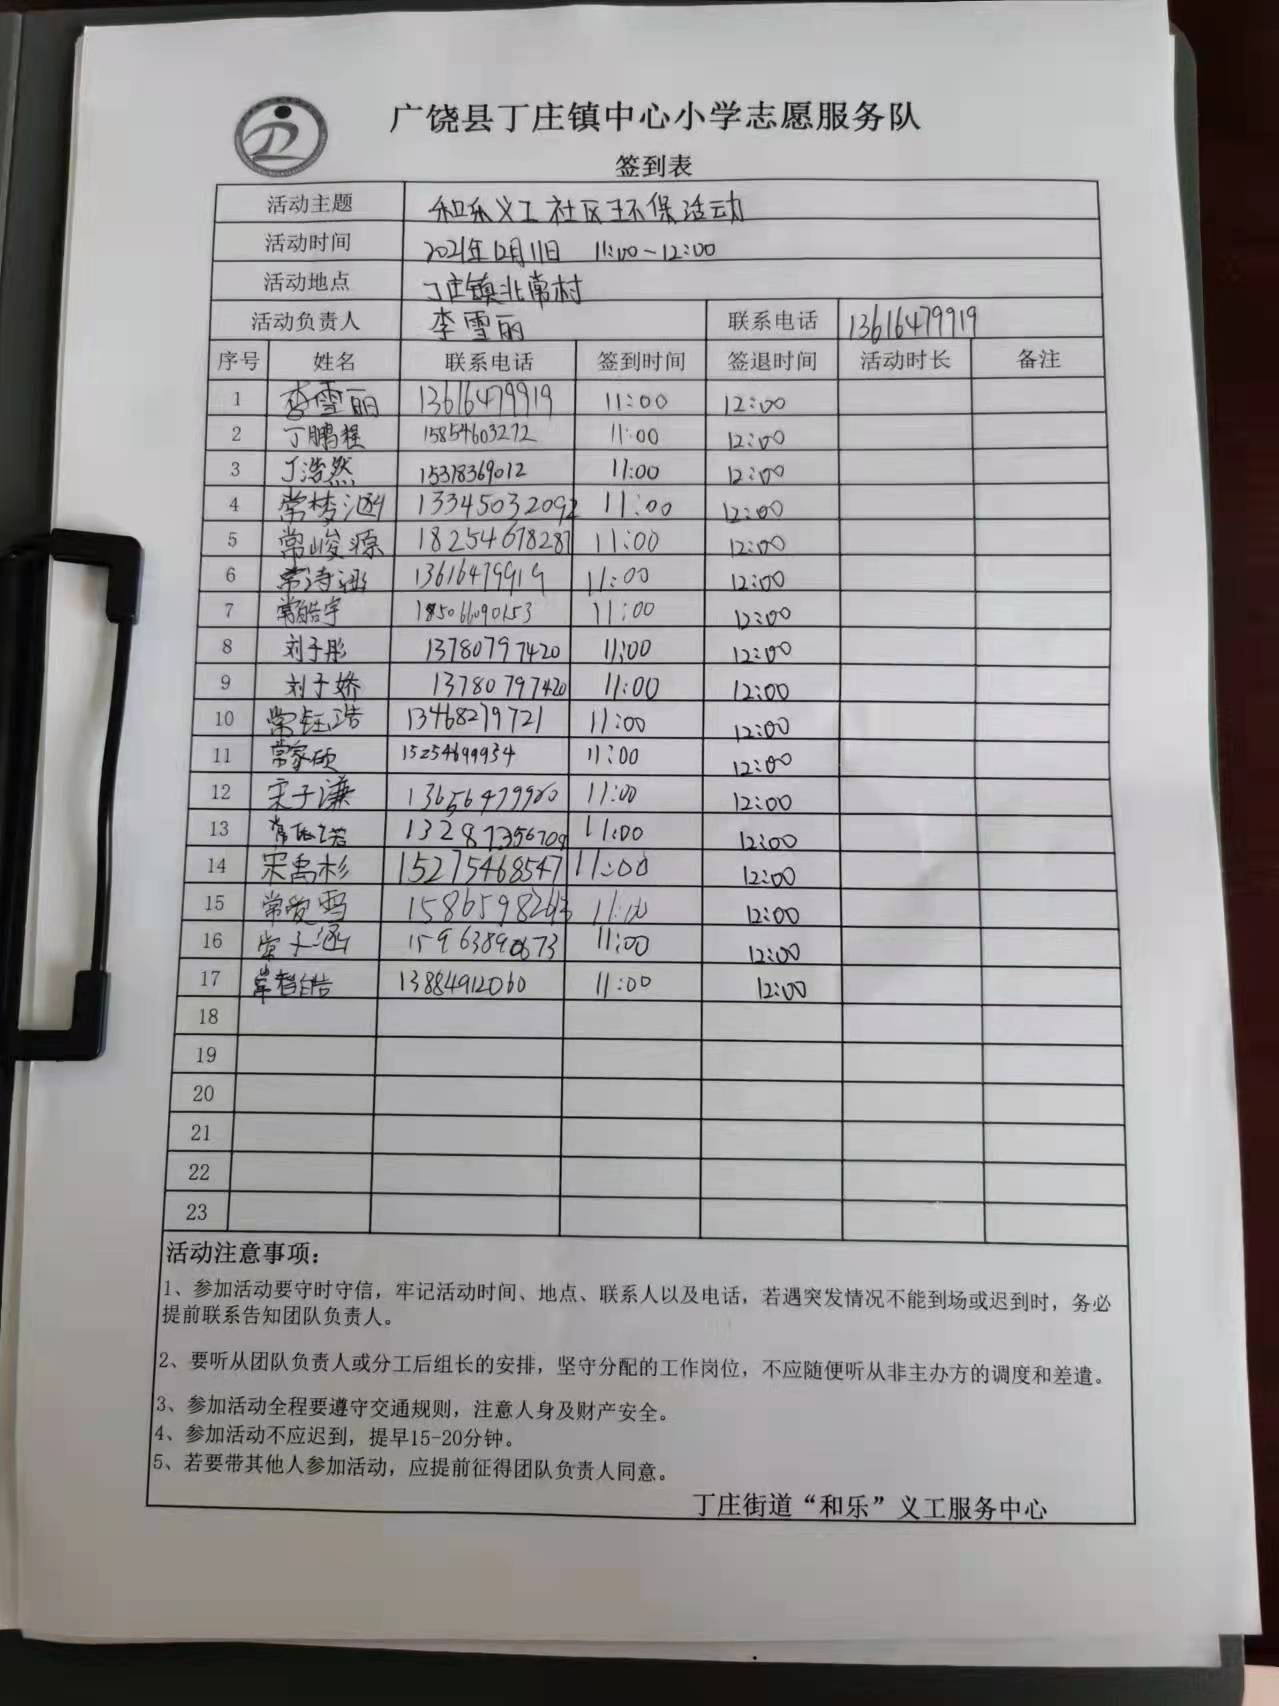 广饶县丁庄镇中心小学志愿服务队
签到表
活动主题 和乐义工社区环保活动
活动时间 2021年12月11日 11:00~12:00
活动地点 丁庄镇北常村
活动负责人 李雪丽 联系电话 13616479919
序号 姓名 联系电话 签到时间 签退时间 活动时长 备注
1 李雪丽 13616479919 11:00 12:00
2 丁鹏程 15854603272 11:00 12:00
3 丁浩然 15318369012 11:00 12:00
4 常梦涵 13345032092 11:00 12:00
5 常峻源 18254678287 11:00 12:00
6 常诗涵 13616479919 11:00 12:00
7 常皓宇 18506609153 11:00 12:00
8 刘子彤 13780797420 11:00 12:00
9 刘子娇 13780797420 11:00 12:00
10 常钰浩 13468279721 11:00 12:00
11 常家硕 15254699934 11:00 12:00
12 宋子谦 11:00 12:00
13 11:00 12:00
14 宋禹杉 15275468547 11:00 12:00
15 11:00 12:00
16 常子涵 15963890673 11:00 12:00
17 13884912060 11:00 12:00
18
19
20
21
22
23
活动注意事项：
1、参加活动要守时守信，牢记活动时间、地点、联系人以及电话，若遇突发情况不能到场或迟到时，务必
提前联系告知团队负责人。
2、要听从团队负责人或分工后组长的安排，坚守分配的工作岗位，不应随便听从非主办方的调度和差遣。
3、参加活动全程要遵守交通规则，注意人身及财产安全。
4、参加活动不应迟到，提早15-20分钟。
5、若要带其他人参加活动，应提前征得团队负责人同意。
丁庄街道“和乐”义工服务中心